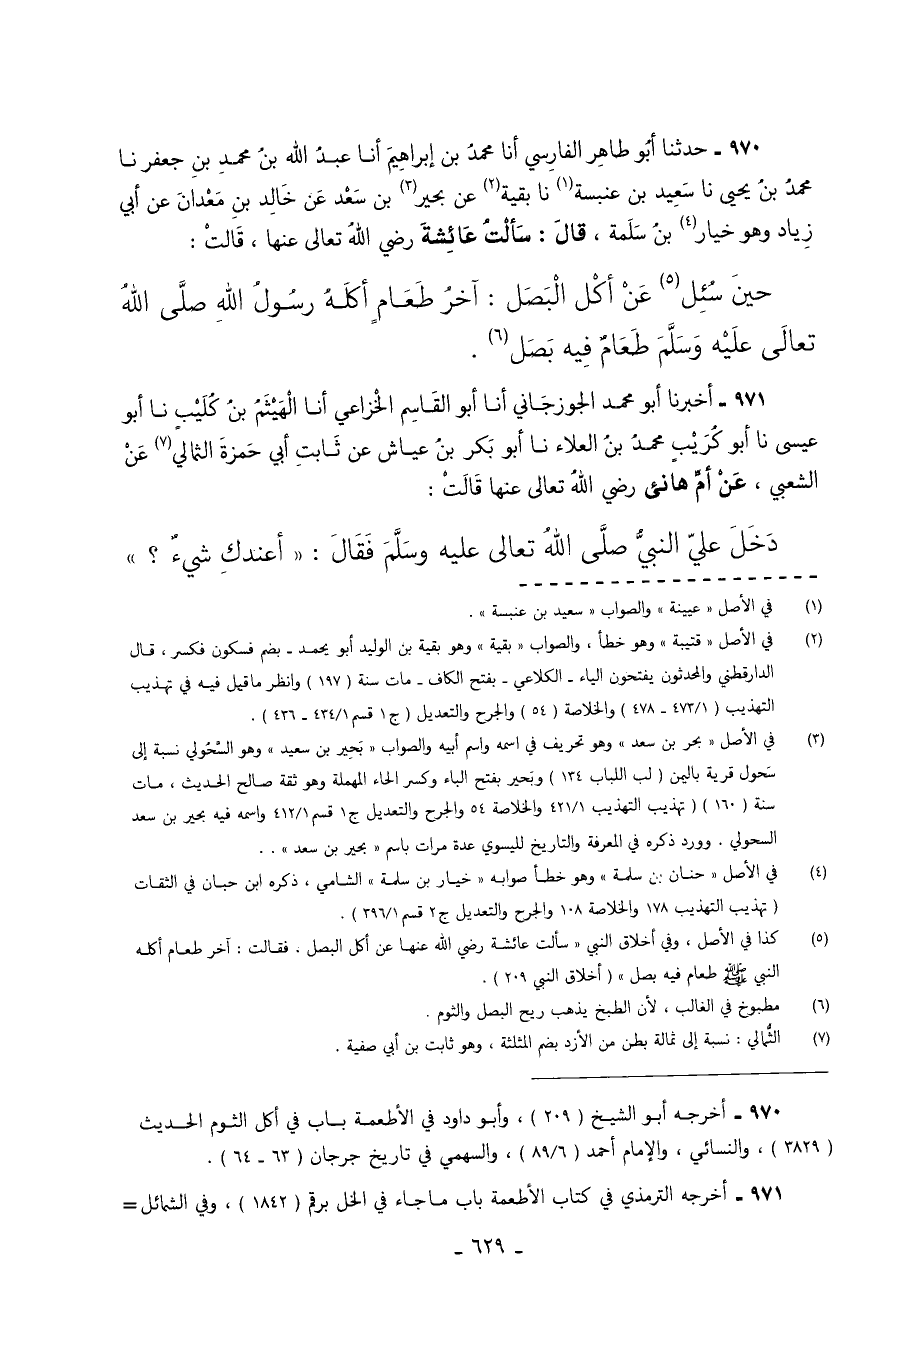 ٩٧٠ ـ حدثنا أبُو طاهِر الفارسي أنا محمدُ بن إبراهِيمَ أنـا عبـدُ الله بنُ محمـدِ بنِ جعفر نـا
محمدُ بنُ يحيى نا سَعِيد بن عنبسة(١) نا بقية(٢) عن بحير(٣) بن سَعْد عَن خَالِد بنِ مَعْدانَ عن أبي
زِياد وهو خيار(٤) بنُ سَلَمة ، قالَ : سَألْتُ عَائِشةَ رضي اللهُ تعالى عنها ، قَالتْ :
حينَ سُئِل(٥) عَنْ أكْل الْبَصَل : آخرُ طَعَـامٍ أكلَـهُ رسُـولُ اللهِ صلَّى اللهُ
تعالَى علَيْه وَسَلَّمَ طَعَامٌ فِيه بَصَل(٦) .
٩٧١ ـ أخبرنا أبو محمد الجوزجَـاني أنـا أبو القَـاسِمِ الخْزاعي أنـا الْهَيْثَمُ بنُ كُلَيْبٍ نـا أبو
عيسى نا أبو كُرَيْبٍ محمـدُ بنُ العلاء نـا أبو بَكر بنُ عيـاش عن ثَـابتِ أبي حَمزةَ الثمالي(٧) عَنْ
الشعبي ، عَنْ أمِّ هانئ رضي اللهُ تعالى عنها قَالَتْ :
دَخَلَ عليّ النبيُّ صلَّى اللهُ تعالى عليه وسَلَّمَ فَقَالَ : « أعندكِ شيءٌ ؟ »
(١) في الأصل « عيينة » والصواب « سعيد بن عنبسة » .
(٢) في الأصل « قتيبة » وهو خطأ ، والصواب « بقية » وهو بقية بن الوليد أبو يحمد ـ بضم فسكون فكسر ، قـال
الدارقطني والمحدثون يفتحون الياء ـ الكلاعي ـ بفتح الكاف ـ مات سنة ( ١٩٧ ) وانظر ماقيل فيـه في تهـذيب
التهذيب ( ٤٧٣/١ ـ ٤٧٨ ) والخلاصة ( ٥٤ ) والجرح والتعديل ( ج١ قسم٤٣٤/١ ـ ٤٣٦ ) .
(٣) في الأصل « بحر بن سعد » وهو تحريف في اسمه واسم أبيه والصواب « بَحِير بن سعيد » وهو السْحُولي نسبة إلى
سَحول قرية باليمن ( لب اللباب ١٣٤ ) وبَحير بفتح الباء وكسر الحاء المهملة وهو ثقة صالح الحديث ، مـات
سنة ( ١٦٠ ) ( تهذيب التهذيب ٤٢١/١ والخلاصة ٥٤ والجرح والتعديل ج١ قسم٤١٢/١ واسمه فيه بحير بن سعد
السحولي . وورد ذكره في المعرفة والتاريخ لليسوي عدة مرات باسم « بحير بن سعد » . .
(٤) في الأصل « حنـان بن سلمة » وهو خطـأ صوابـه « خيـار بن سلمة » الشـامي ، ذكره ابن حبـان في الثقـات
( تهذيب التهذيب ١٧٨ والخلاصة ١٠٨ والجرح والتعديل ج٢ قسم٣٩٦/١ ) .
(٥) كذا في الأصل ، وفي أخلاق النبي « سألت عائشة رضي الله عنهـا عن أكل البصل . فقـالت : آخر طعـام أكلـه
النبي ﷺ طعام فيه بصل » ( أخلاق النبي ٢٠٩ ) .
(٦) مطبوخ في الغالب ، لأن الطبخ يذهب ريح البصل والثوم .
(٧) الثُّمالي : نسبة إلى ثمالة بطن من الأزد بضم المثلثة ، وهو ثابت بن أبي صفية .
٩٧٠ ـ أخرجـه أبـو الشيـخ ( ٢٠٩ ) ، وأبـو داود في الأطعمـة بـاب في أكل الثـوم الحـديث
( ٣٨٢٩ ) ، والنسائي ، والإمام أحمد ( ٨٩/٦ ) ، والسهمي في تاريخ جرجان ( ٦٣ ـ ٦٤ ) .
٩٧١ ـ أخرجه الترمذي في كتاب الأطعمة باب مـاجـاء في الخل برقم ( ١٨٤٢ ) ، وفي الشمائل =
ـ ٦٢٩ ـ